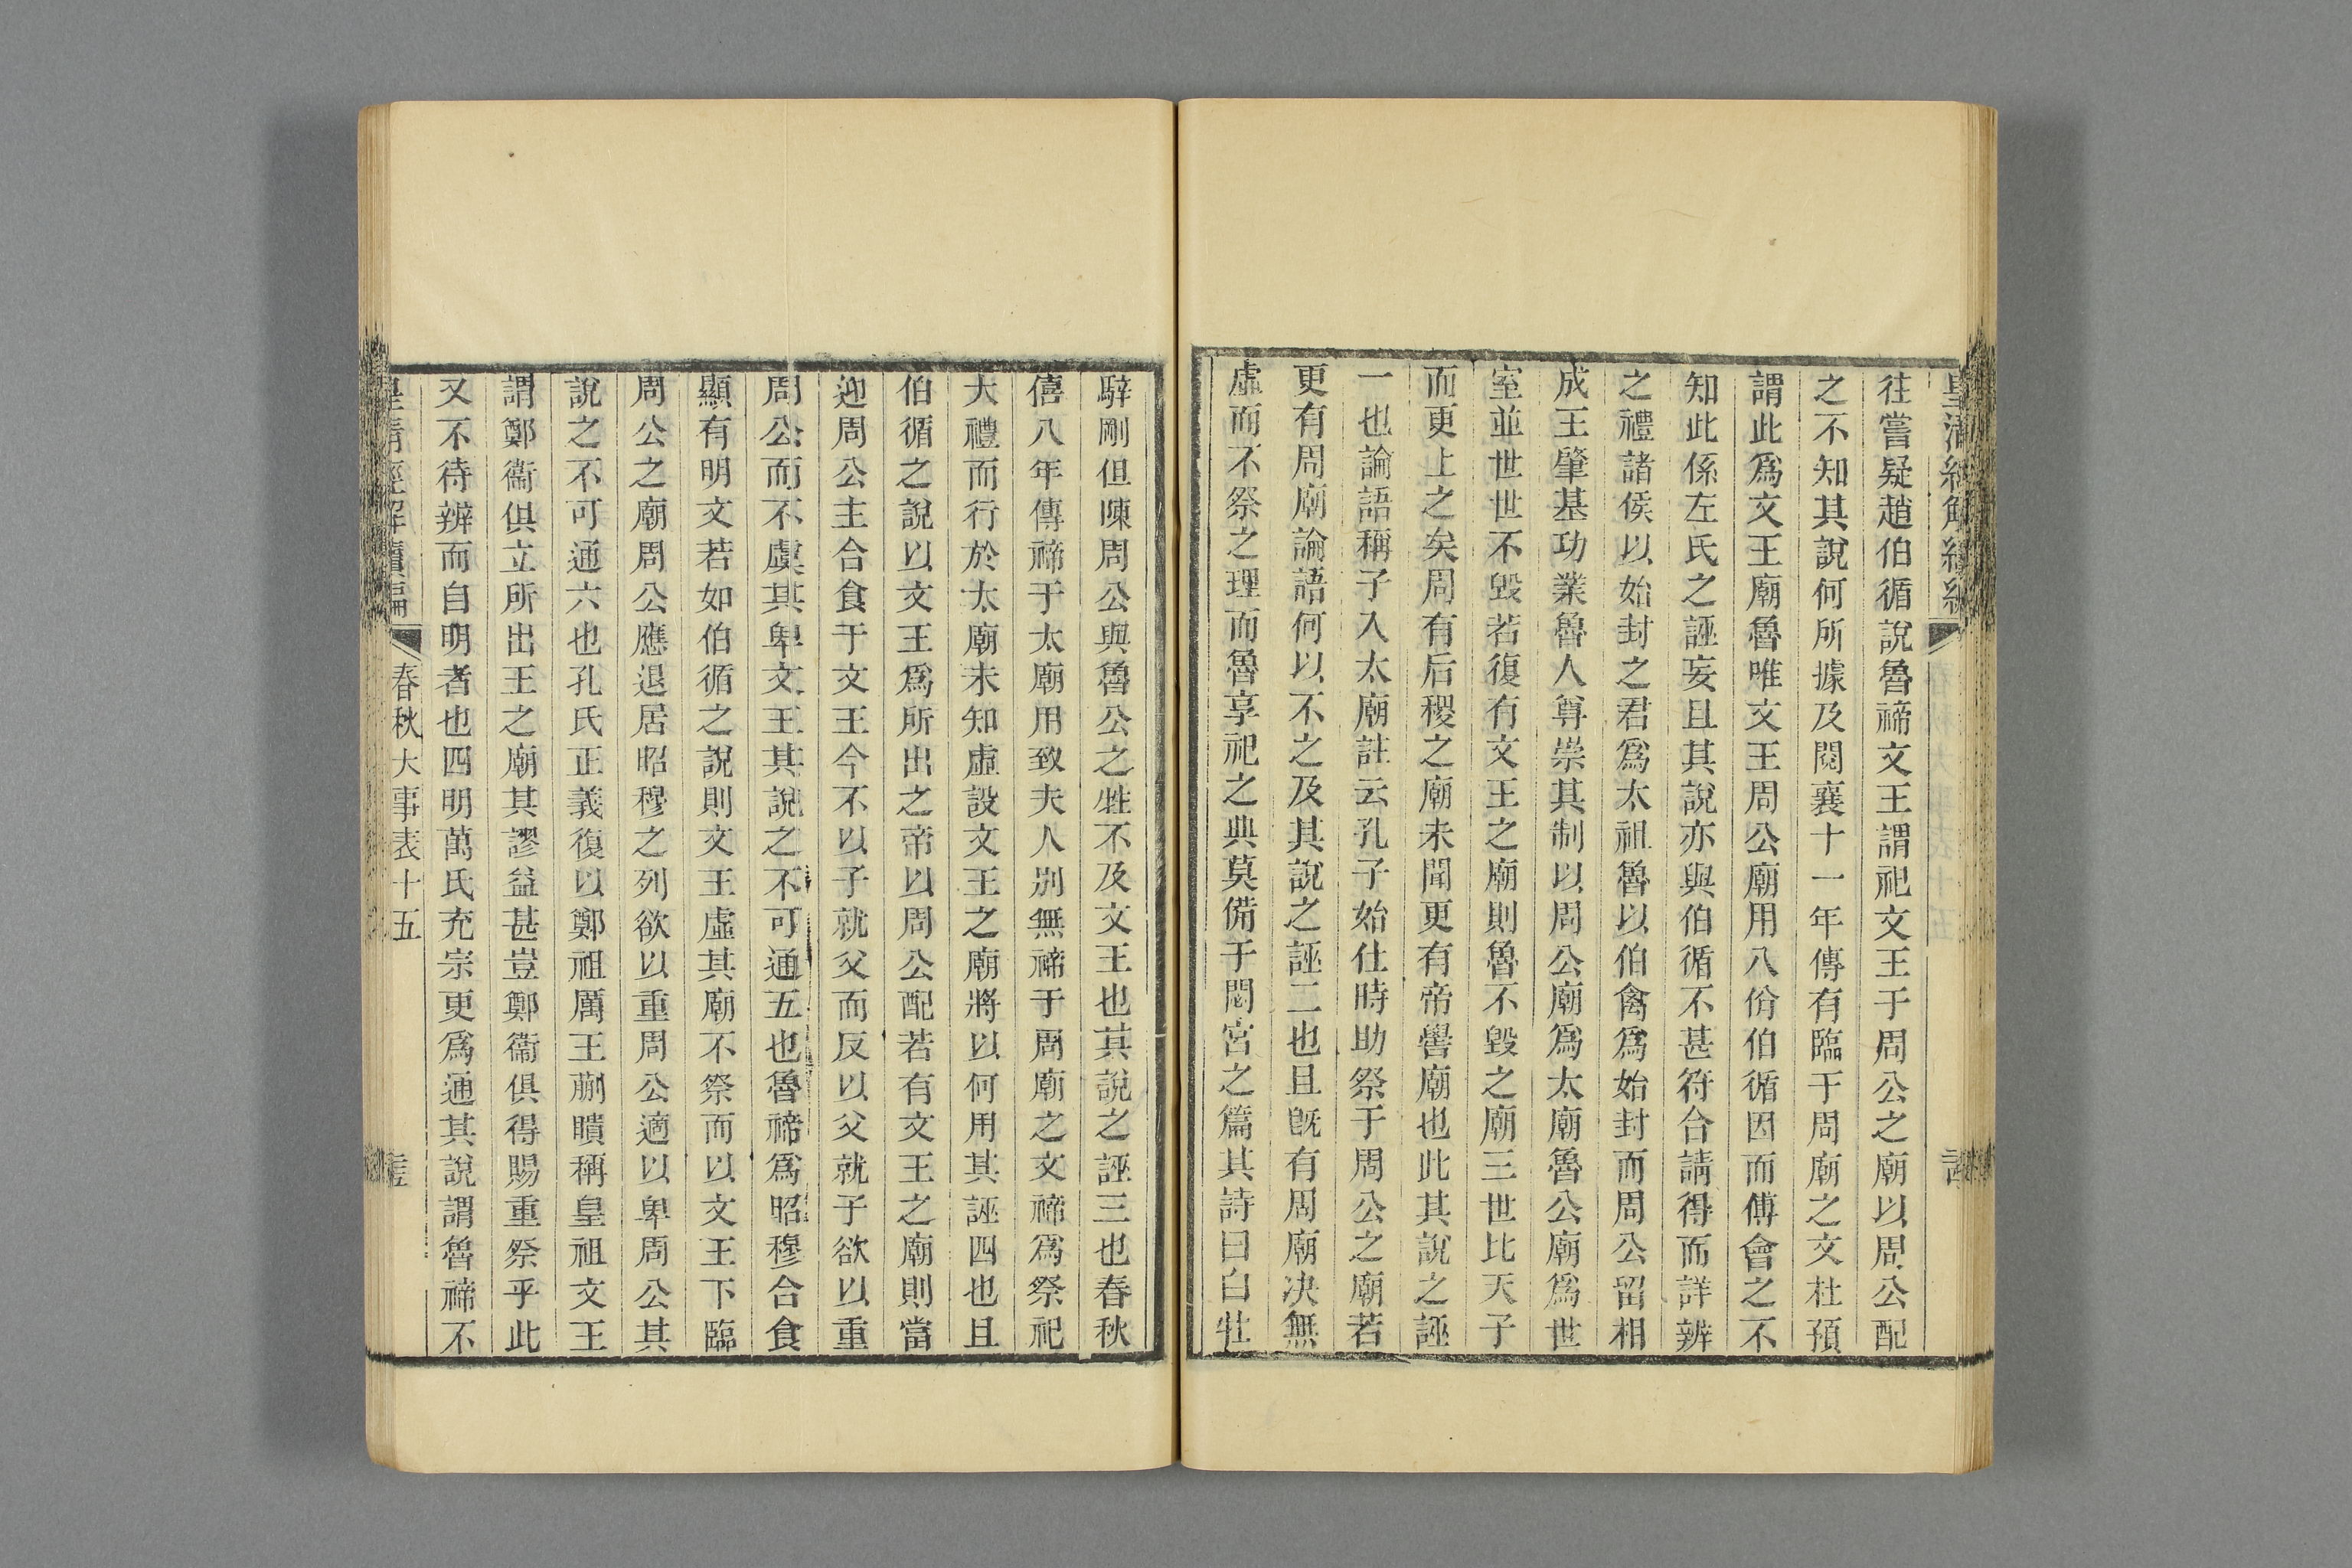 往嘗疑趙伯循說魯禘文王謂祀文王于周公之廟以周公配
之不知其說何所據及閱襄十一年傳有臨于周廟之文杜預
謂此爲文王廟魯唯文王周公廟用八佾伯循因而傅會之不
知此係左氏之誣妄且其說亦與伯循不甚符合請得而詳辨
之禮諸侯以始封之君爲太祖魯以伯禽爲始封而周公留相
成王肇基功業魯人尊崇其制以周公廟爲太廟魯公廟爲世
室並世世不毀若復有文王之廟則魯不毀之廟三世比天子
而更上之矣周有后稷之廟未聞更有帝嚳廟也此其說之誣
一也論語稱子入太廟註云孔子始仕時助祭于周公之廟若
更有周廟論語何以不之及其說之誣二也且旣有周廟决無
虛而不祭之理而魯享祀之典莫備于閟宮之篇其詩曰白牡
騂剛但陳周公與魯公之牲不及文王也其說之誣三也春秋
僖八年傳禘于太廟用致夫人別無禘于周廟之文禘爲祭祀
大禮而行於太廟未知虛設文王之廟將以何用其誣四也且
伯循之說以文王爲所出之帝以周公配若有文王之廟則當
迎周公主合食于文王今不以子就父而反以父就子欲以重
周公而不虞其卑文王其說之不可通五也魯禘爲昭穆合食
顯有明文若如伯循之說則文王虛其廟不祭而以文王下臨
周公之廟周公應退居昭穆之列欲以重周公適以卑周公其
說之不可通六也孔氏正義復以鄭祖厲王蒯聵稱皇祖文王
謂鄭衞俱立所出王之廟其謬益甚豈鄭衞俱得賜重祭乎此
又不待辨而自明者也四明萬氏充宗更爲通其說謂魯禘不
皇清經解續編 春秋大事表十五